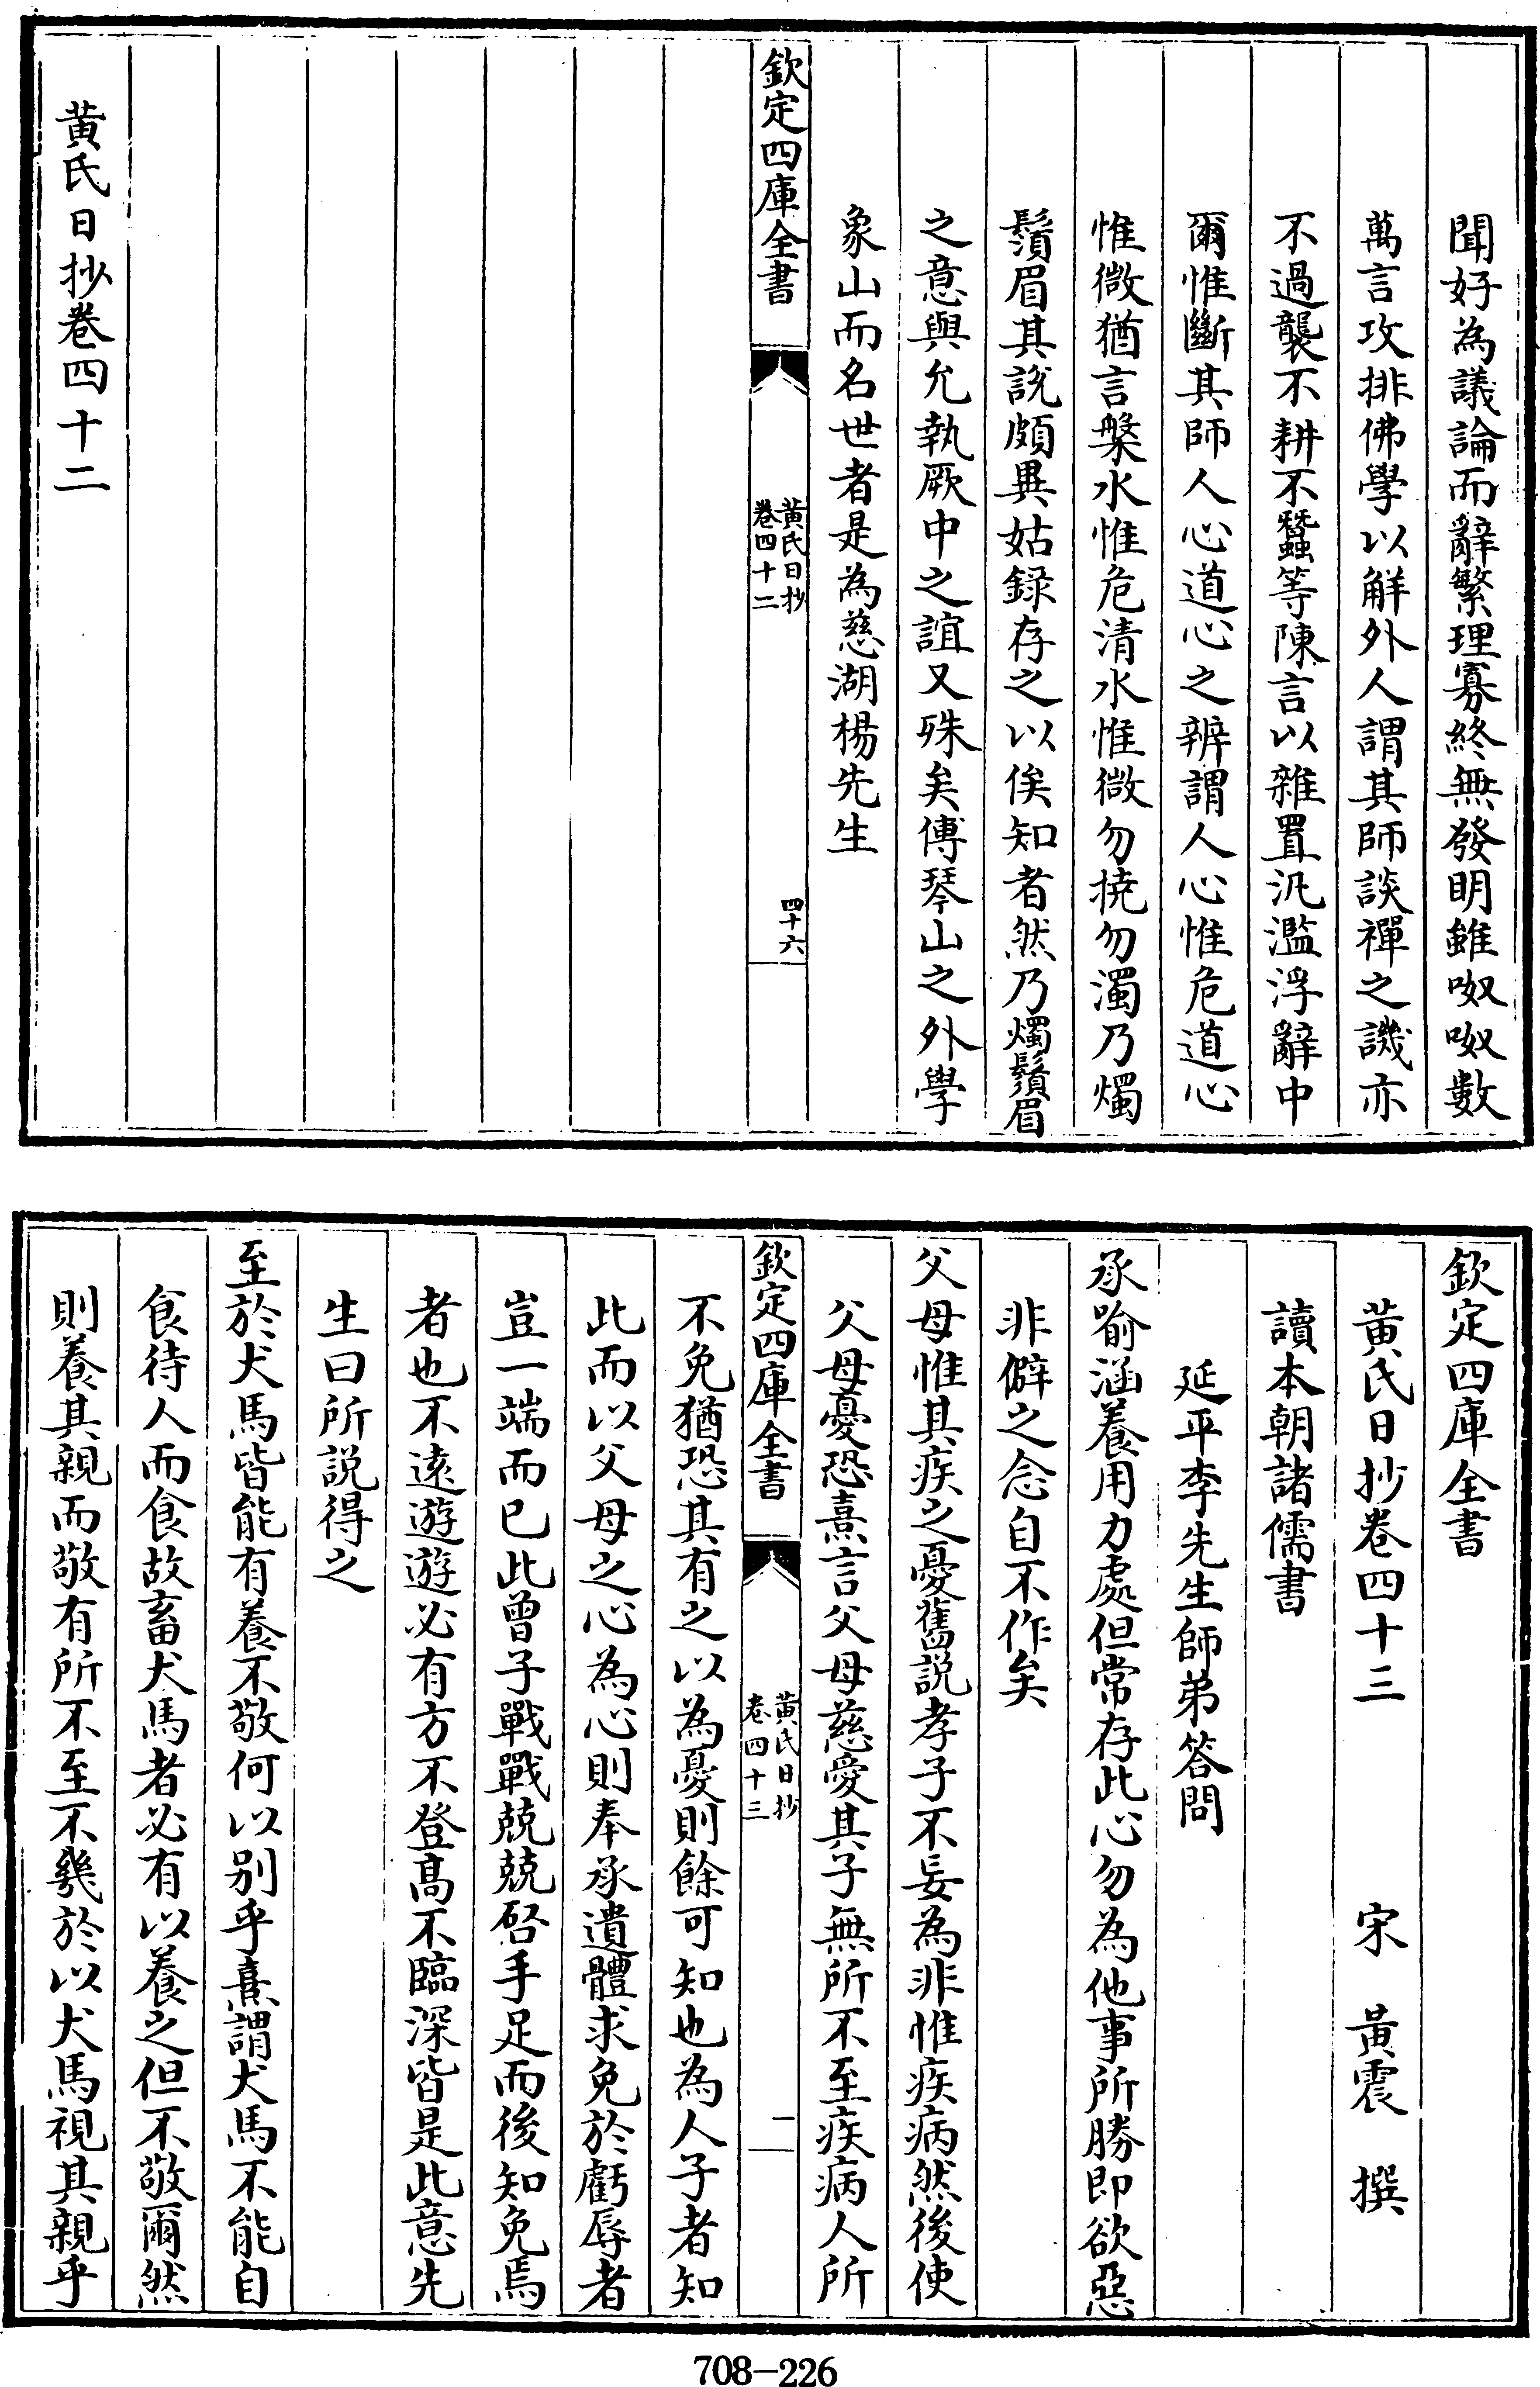 聞好為議論而辭繁理寡終無發明雖呶呶數
萬言攻排佛學以解外人謂其師談禪之譏亦
不過襲不耕不蠶等陳言以雜置汎濫浮辭中
爾惟斷其師人心道心之辨謂人心惟危道心
惟微猶言槃水惟危清水惟微勿撓勿濁乃燭
鬚眉其說頗異姑録存之以俟知者然乃燭鬚眉
之意與允執厥中之誼又殊矣傅琴山之外學
象山而名世者是為慈湖楊先生
欽定四庫全書
黃氏日抄
卷四十二
四十六
黃氏日抄卷四十二
欽定四庫全書
黃氏日抄卷四十三 宋 黃震 撰
讀本朝諸儒書
延平李先生師弟答問
承喻涵養用力處但常存此心勿為他事所勝即欲惡
非僻之念自不作矣
父母惟其疾之憂舊説孝子不妄為非惟疾病然後使
父母憂恐熹言父母慈愛其子無所不至疾病人所
欽定四庫全書
黃氏日抄
卷四十三
一
不免猶恐其有之以為憂則餘可知也為人子者知
此而以父母之心為心則奉承遺體求免於虧辱者
豈一端而已此曾子戰戰兢兢啓手足而後知免焉
者也不遠遊遊必有方不登高不臨深皆是此意先
生曰所説得之
至於犬馬皆能有養不敬何以别乎熹謂犬馬不能自
食待人而食故畜犬馬者必有以養之但不敬爾然
則養其親而敬有所不至不幾於以犬馬視其親乎
708-226